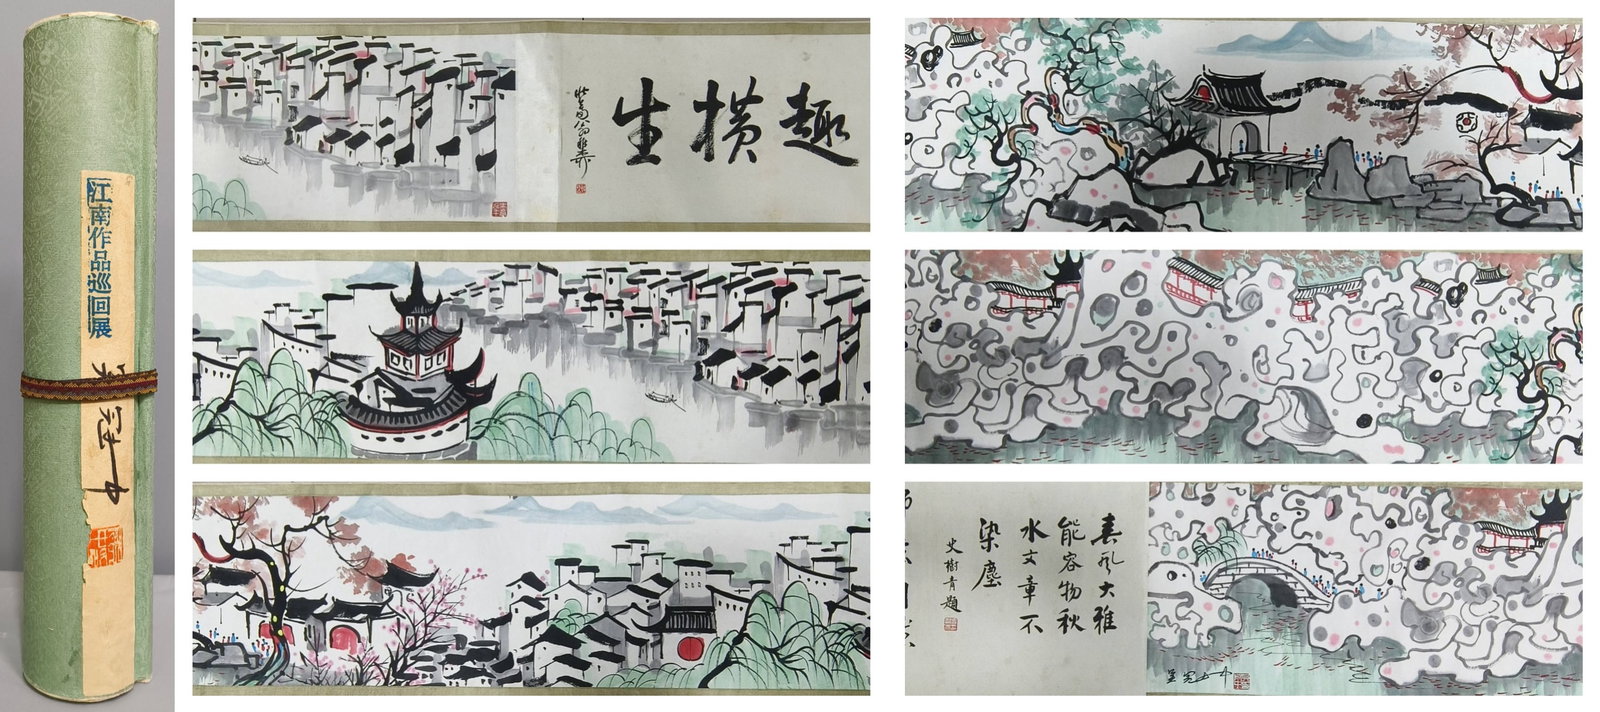 江南作品巡回展
吴冠中
趣横生
壮暮翁稚柳
春风大雅
能容物秋
水文章不
染尘
史树青题
吴冠中